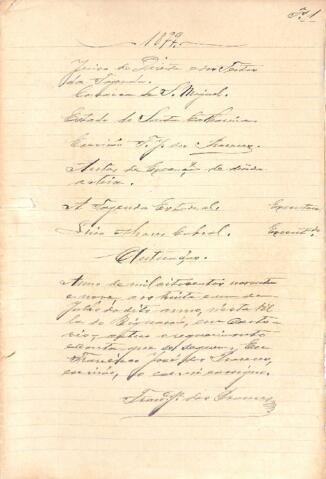 Fs. 1
1899.
Juizo de Direito e dos Feitos
da Fazenda
Comarca de S. Miguel.
Estado de Santa Catharina
Escrivão F. J. dos
Autos de Execução de divida
activa.
A Fazenda Estadual. Exequente
Luis Alves Cabral. Executado
Autuação.
Anno de mil oitocentos noventa
e nove, aos trinta e um de
Julho do dito anno, nesta Vil-
la de Biguassú, em carto-
rio, autuo o requerimento
e conta que se seguem. Eu
Francisco José dos
escrivão, o escrevi e assigno.
Franc. J. dos